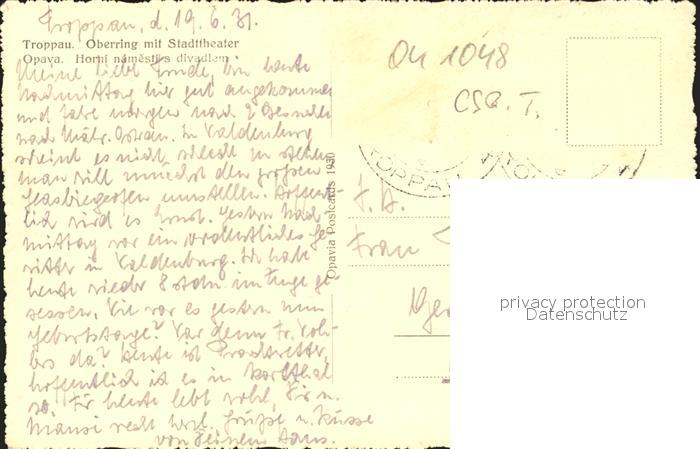 Troppau, d. 19. 6. 31.
Troppau. Oberring mit Stadttheater
Opava. Horní náměstí s divadlem
Meine liebe Trude, bin heute
Nachmittag hier gut angekommen
und fahre morgen nach 2
nach Mähr. Ostrau. In Waldenburg
scheint es nicht schlecht zu stehen
man will zunächst den großen
umstellen. Hoffent-
lich wird es Ernst. Gestern Nach-
mittag war ein ordentliches Ge-
witter in Waldenburg. Ich habe
heute wieder 8 Stdn im Zuge ge-
sessen. Wie war es gestern zum
Geburtstage? War denn Fr.
da? Heute ist Prachtwetter,
hoffentlich ist es in
so. Für heute lebt wohl, Dir u.
Mausi recht herzl. Grüße u. Küsse
von Deinem Hans.
Opavia Postcards 1930
04 1048
CSR. T.
TROPPAU
F. A.
Frau
privacy protection
Datenschutz